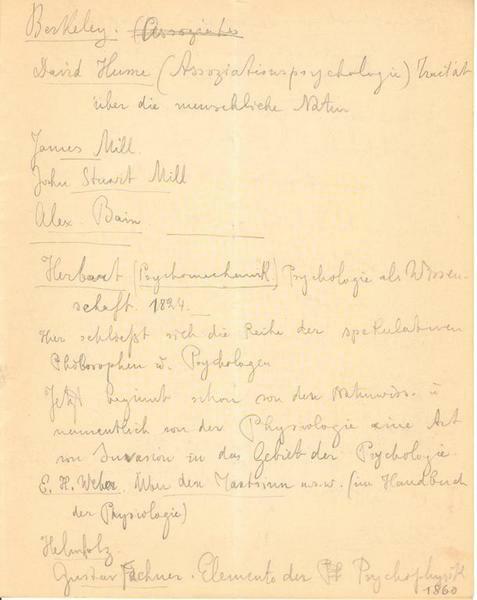 Berkeley. (Assoziates
David Hume (Assoziationspsychologie) Tractat
über die menschliche Natur
James Mill.
John Stuart Mill
Alex. Bain
Herbart (Psychomechanik) Psychologie als Wissen-
schaft. 1824.
Hier schließt sich die Reihe der spekulativen
Philosophen u. Psychologen
Jetzt beginnt schon von den Naturwiss. u
namentlich von der Physiologie eine Art
von Invasion in das Gebiet der Psychologie.
E. H. Weber. Über den Tastsinn u.s.w. (im Handbuch
der Physiologie)
Helmholz
Gustav Fechner. Elemente der Psychophysik
1860